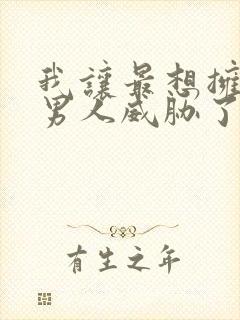 我讓最想擁
男人威胁了
有生之年